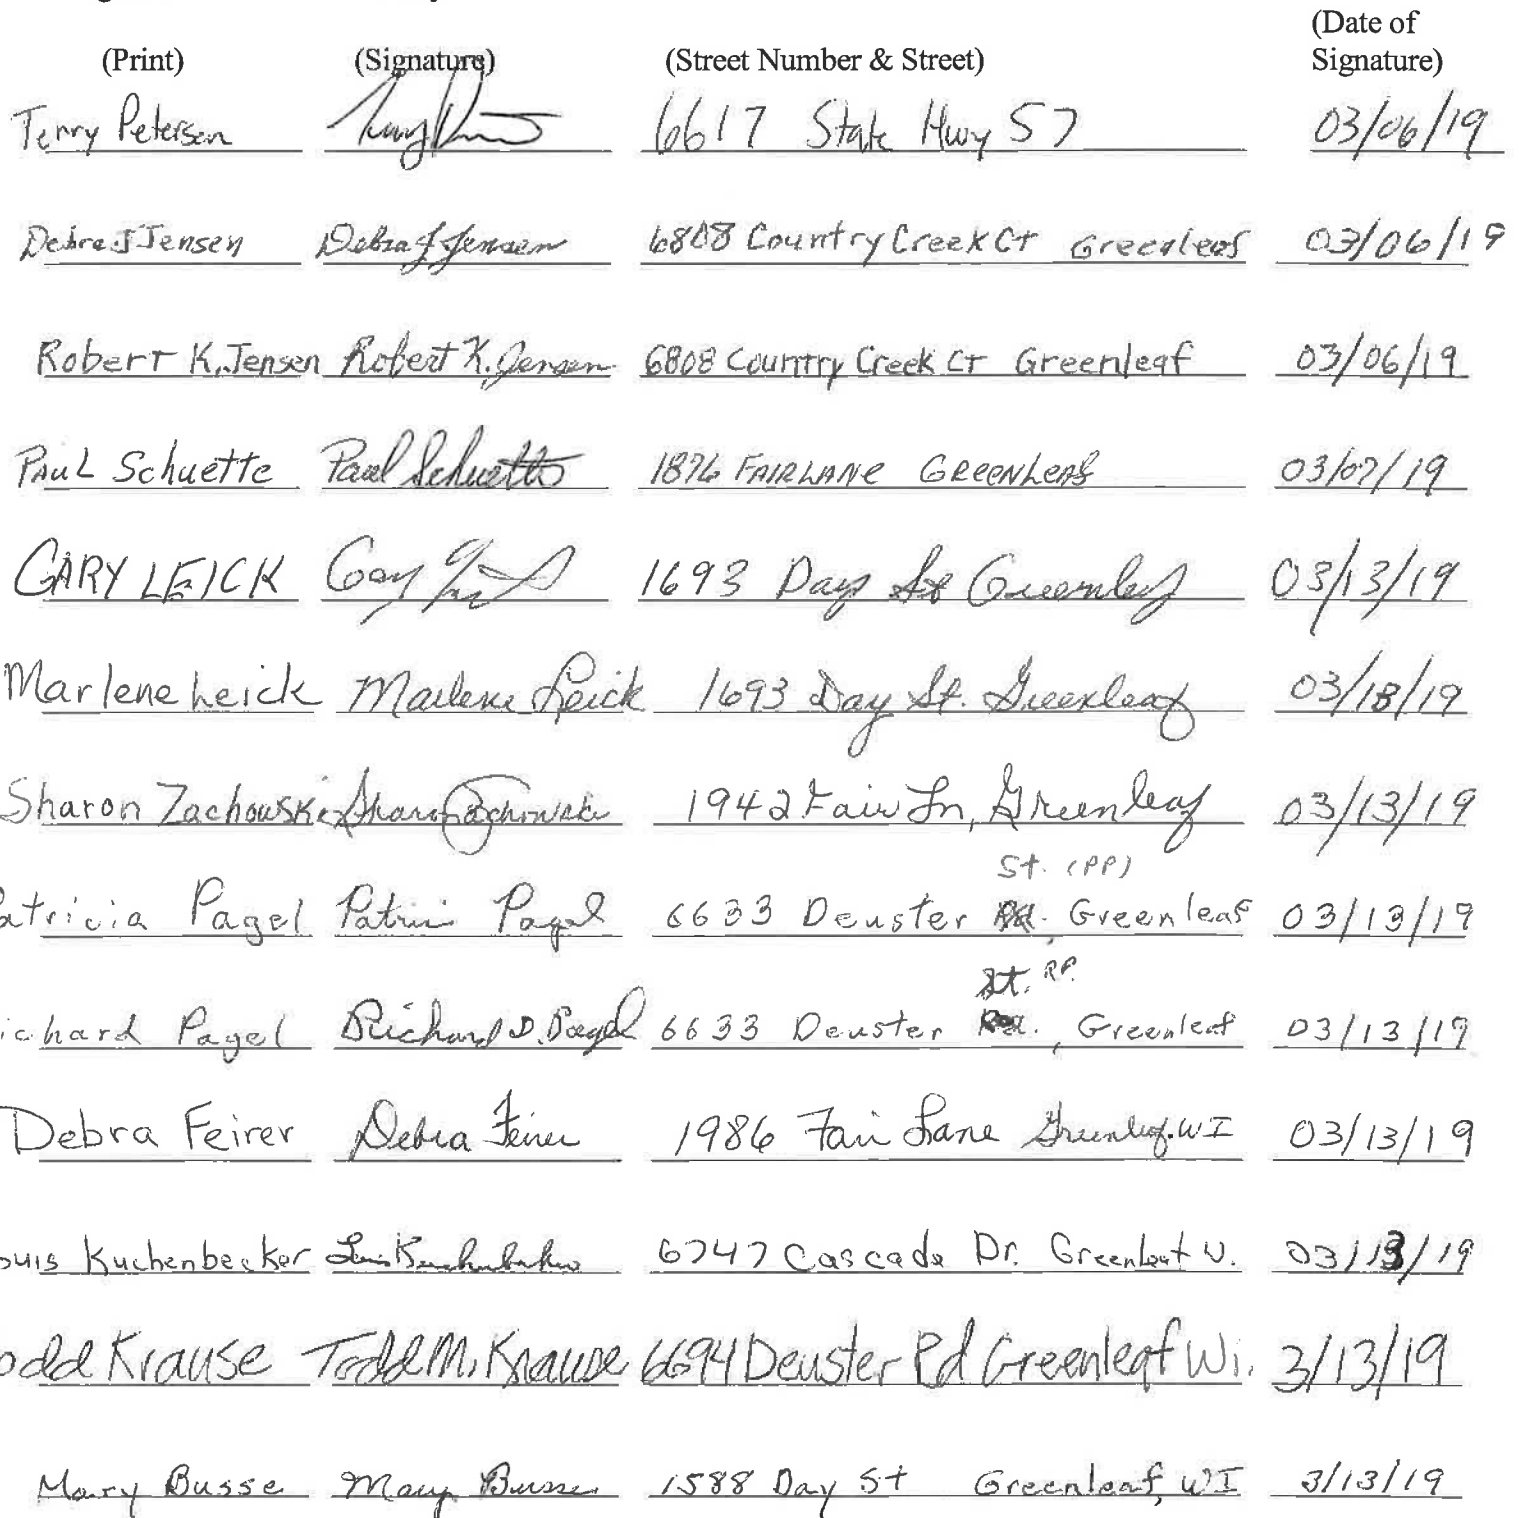 (Date of
(Print) (Signature) (Street Number & Street) Signature)
Terry Petersen 6617 State Hwy 57 03/06/19
Debra J Jensen Debra J Jensen 6808 Country Creek Ct Greenleaf 03/06/19
Robert K. Jensen Robert K. Jensen 6808 Country Creek Ct Greenleaf 03/06/19
Paul Schuette Paul Schuette 1876 FAIRLANE GREENLEAF 03/07/19
GARY LEICK Gary 1693 Day St Greenleaf 03/13/19
Marlene Leick Marlene Leick 1693 Day St. Greenleaf 03/18/19
Sharon Zachowski Sharon Zachowski 1942 Fair Ln, Greenleaf 03/13/19
St. (PP)
atricia Pagel Patrici Pagel 6633 Deuster Rd., Greenleaf 03/13/19
St. RP.
ichard Pagel Richard D. Pagel 6633 Deuster Rd., Greenleaf 03/13/19
Debra Feirer Debra Feirer 1986 Fair Lane Greenleaf. WI 03/13/19
ouis Kuchenbecker Louis Kuchenbecker 6747 Cascade Dr. Greenleaf W. 03/13/19
odd Krause Todd M. Krause 6694 Deuster Rd Greenleaf Wi. 3/13/19
Mary Busse Mary Busse 1588 Day St Greenleaf, WI 3/13/19